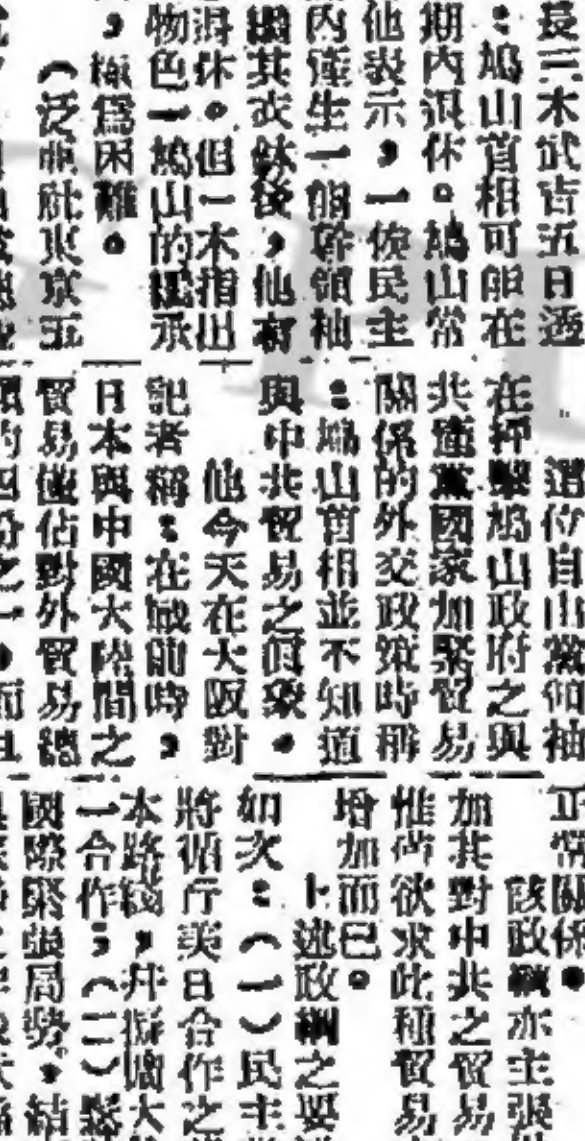 長三木武吉五日透
：鳩山首相可能在
期內退休。鳩山常
他表示，一俟民主
內產生一能幹領袖
繼其衣鉢後，他當
得休。但一木指出
物色一鳩山的繼承
，極爲困難。
（泛亞社東京五
這位自由黨領袖
在抨擊鳩山政府之與
共產黨國家加緊貿易
關係的外交政策時稱
：鳩山首相並不知道
與中共貿易之眞象。
他今天在大阪對
記者稱：在戰前時，
日本與中國大陸間之
貿易僅佔對外貿易總
額的四份之一，而且
正常關係。
該政綱亦主張
加其對中共之貿易
惟尚欲求此種貿易
增加而已。
上述政綱之要
如次：（一）民主
將循行美日合作之
本路綫，幷擬擴大
一合作；（二）鬆
國際緊張局勢，結